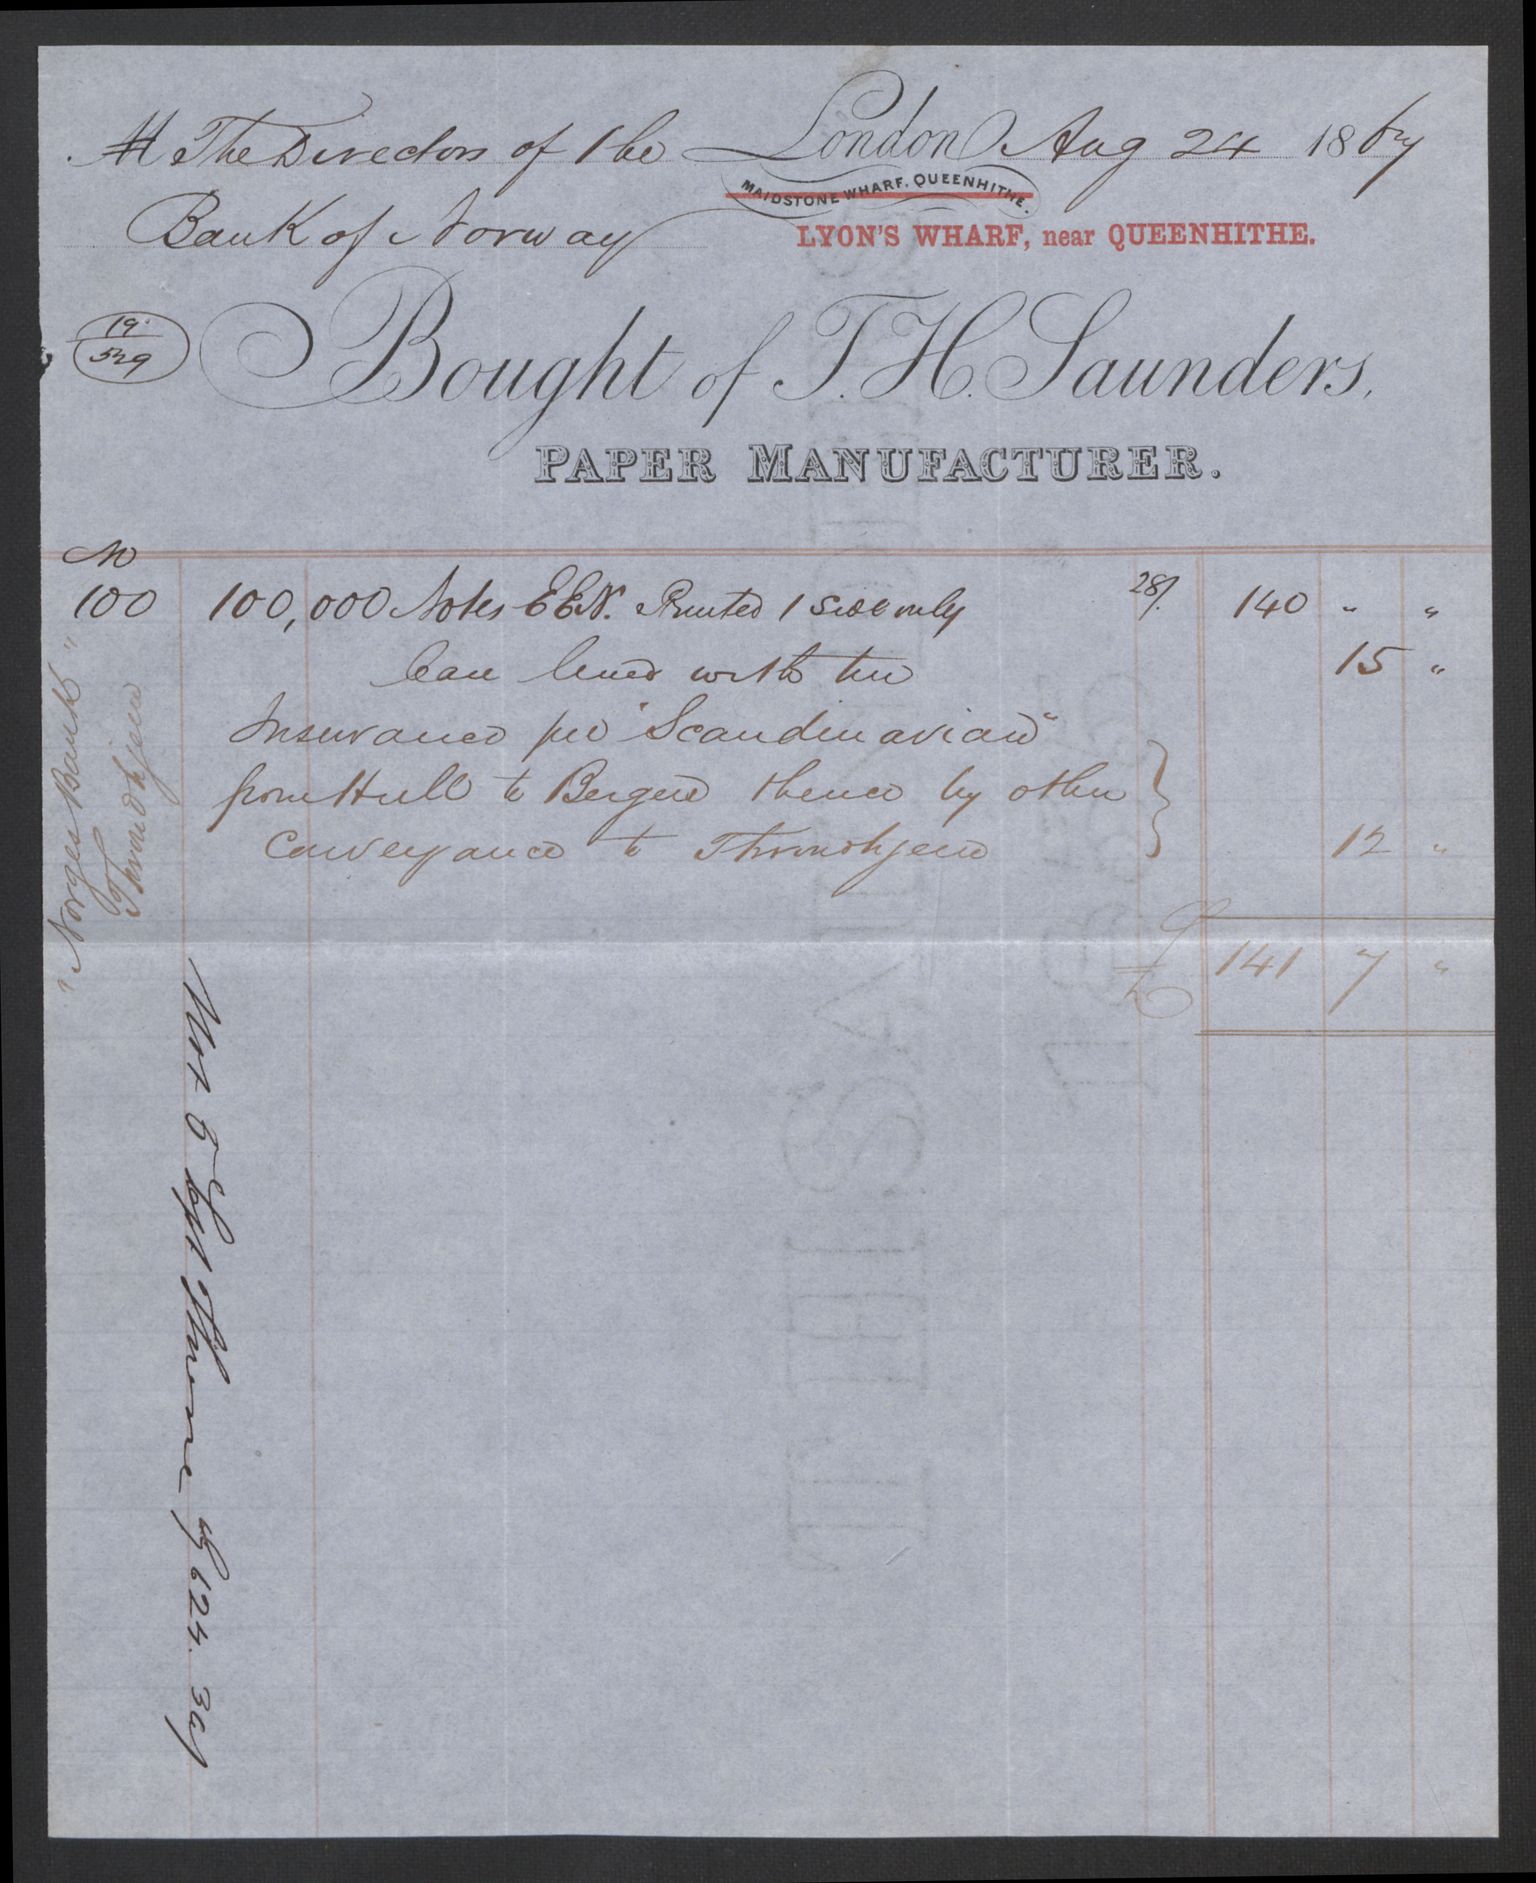 M The Directors of the London Aug 24 1867
MAIDSTONE WHARF. QUEENHITHE.
Bank of Norway
LYON'S WHARF, near QUEENHITHE.
19
529
Bought of T. H. Saunders,
PAPER MANUFACTURER.
No
100 100,000 Notes E.E.N. Printed 1 side only 28/. 140 " "
Case lined with tin 15 "
Insurance per "Scandinavian"
from Hull to Bergen thence by other
Conveyance to Throndhjem 12 "
£ 141 7 "
"Norges Bank"
Throndhjem
624.